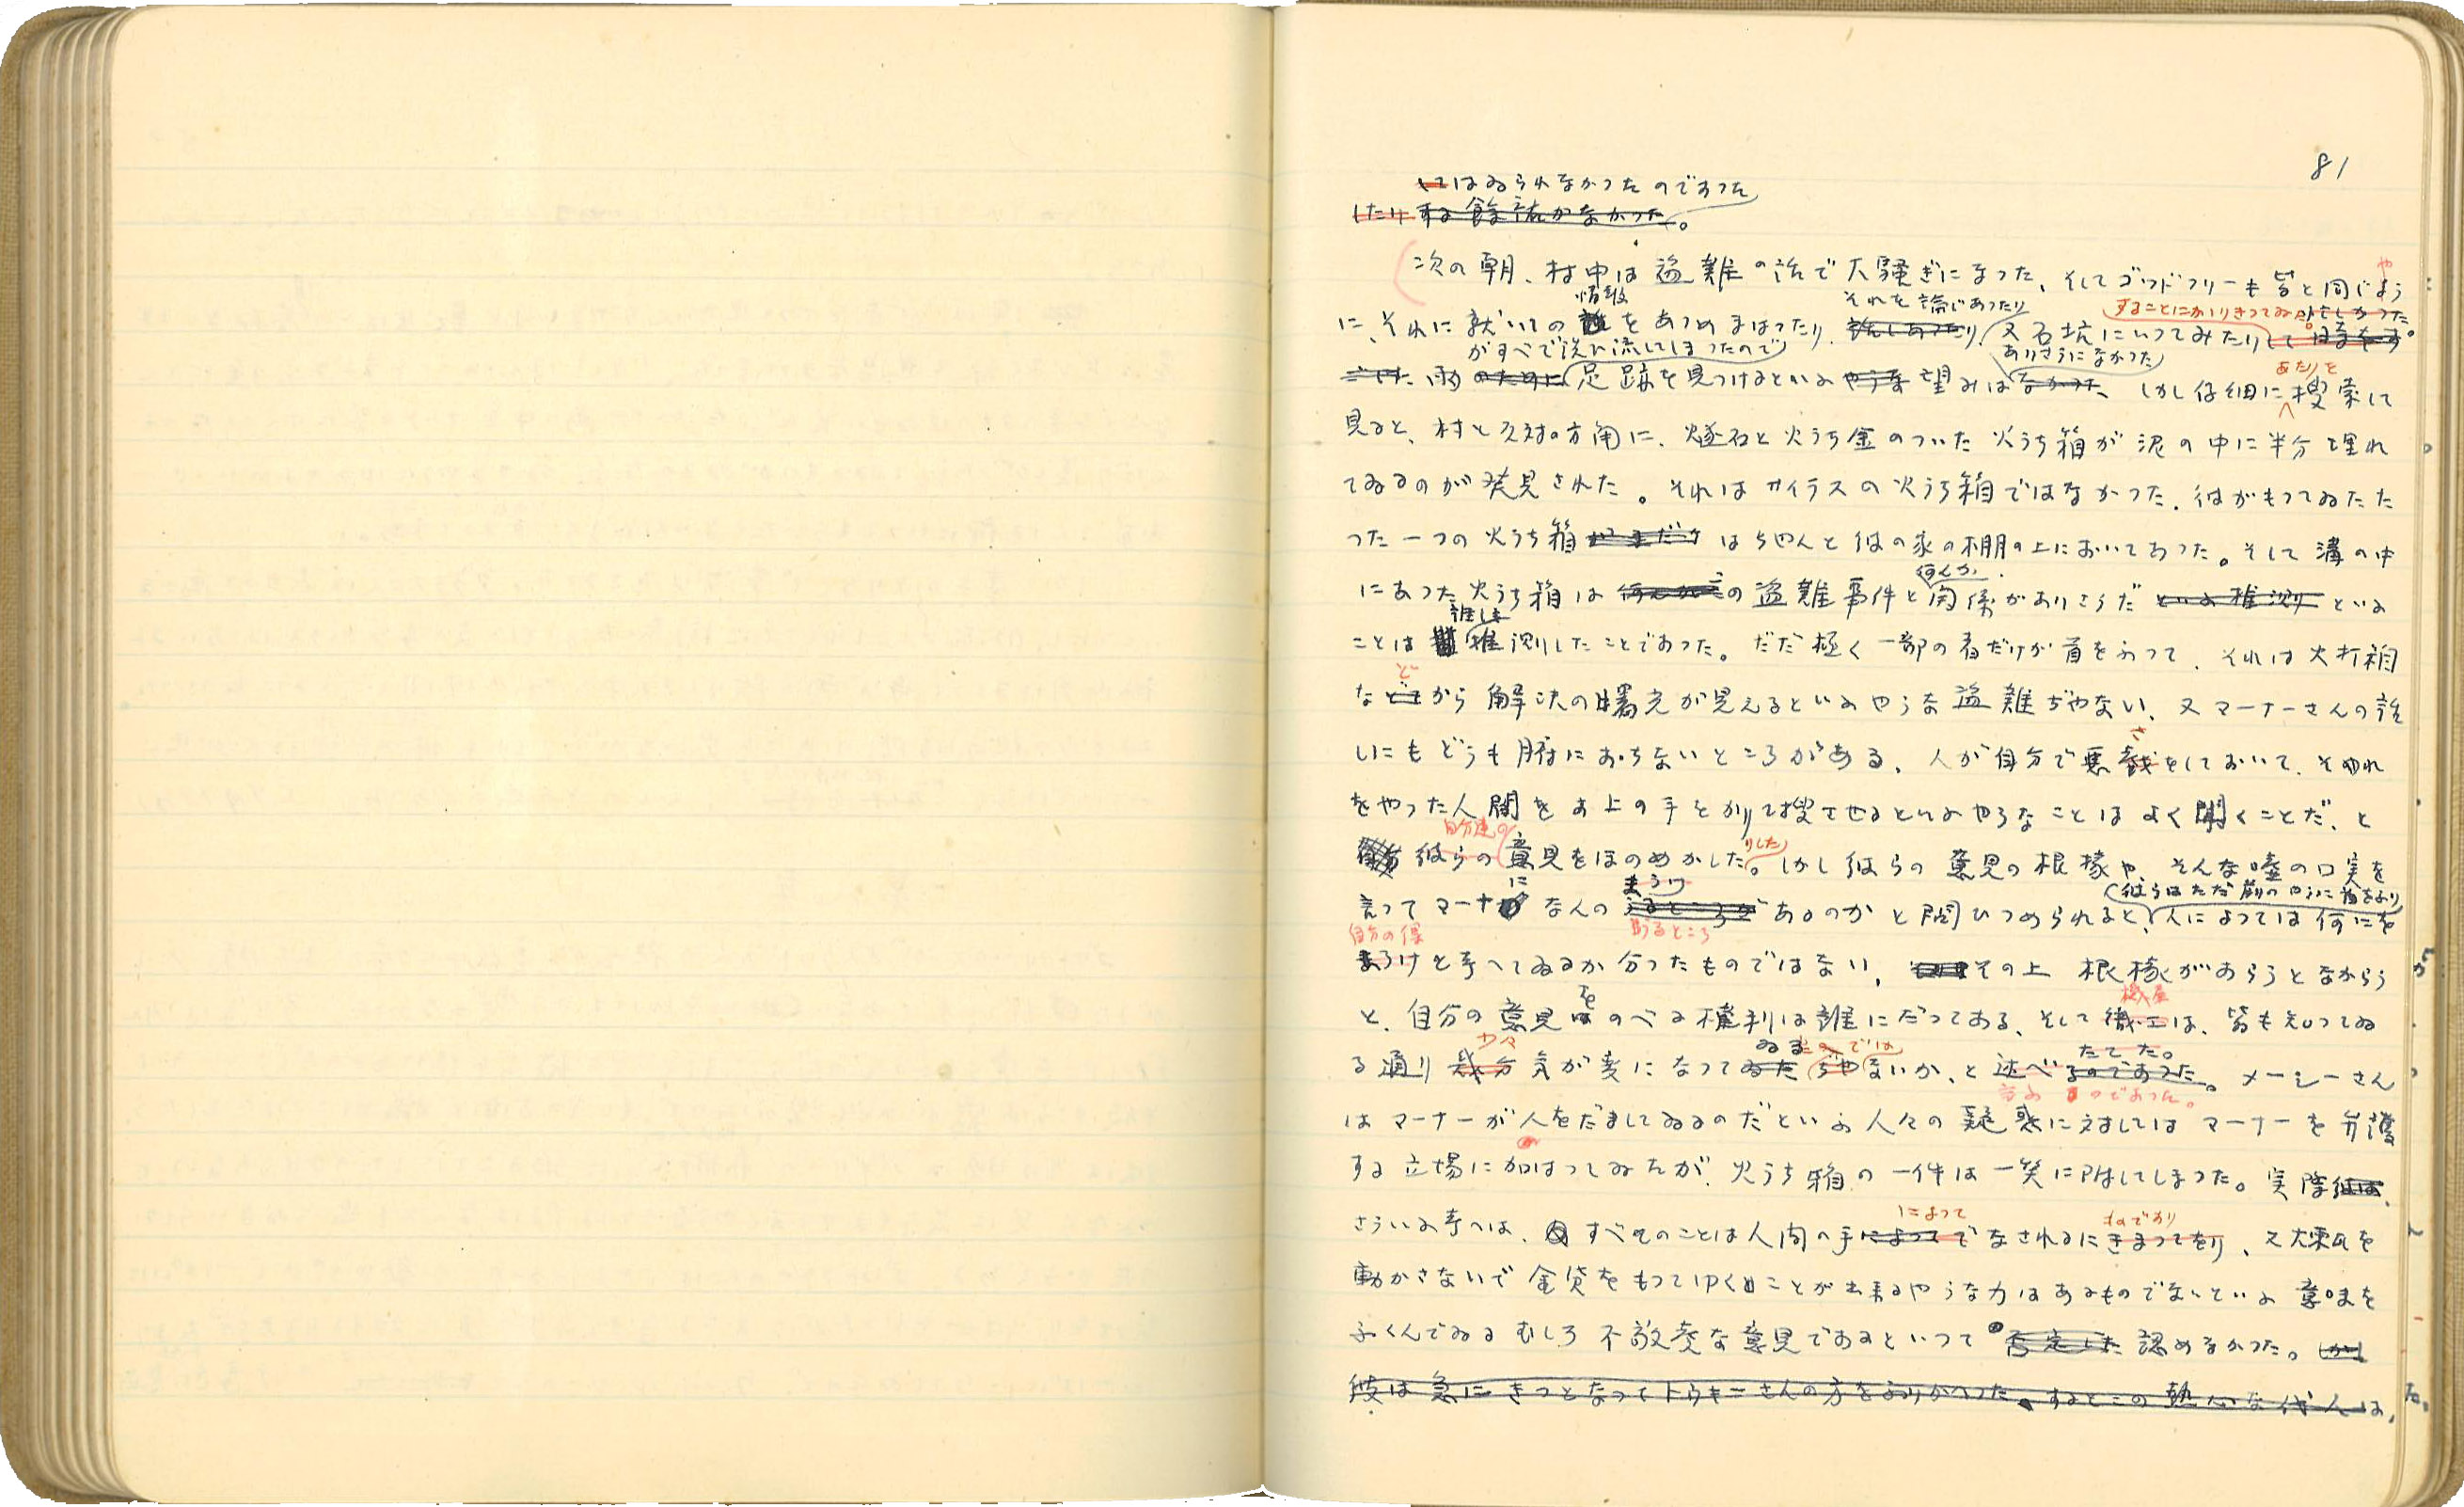 81
してはゐられなかつたのであつた
したり する餘裕がなかつた。
次の朝、村中は盗難の話で大騒ぎになつた、そしてゴッドフリーも皆と同じやう
情報 それを論じあつたり することにかゝりきつてゐ
に、それに就いての をあつめまはつたり、話しあつたり、又石坑にいつてみたりして
がすべて洗ひ流してしまつたので ありさうになかつた あたりを
雨のために足跡を見つけるといふやうな望みはなかつた、しかし仔細に搜索して
見ると、村と反対の方角に、燧石と火うち金のついた火うち箱が泥の中に半分埋れ
てゐるのが発見された。それはサイラスの火うち箱ではなかつた、彼がもつてゐたた
つた一つの火うち箱がまだ はちやんと彼の家の棚の上においてあつた。そして溝の中
何んか
にあつた火うち箱は何んかこの盗難事件と関係がありさうだといふ推測といふ
誰しも
ことは 推測したことであつた。だゞ極く一部の者だけが首をふつて、それは火打箱
ど
などから解決の曙光が見えるといふやうな盗難ぢやない、又マーナーさんの話
さ
しにもどうも腑におちないところがある、人が自分で悪戯をしておいて、それ
をやつた人間をお上の手をかりて搜させるといふやうなことはよく聞くことだ、と
自分達の りした
彼らの意見をほのめかした。しかし彼らの意見の根據や、そんな嘘の口実を
に まうけ 彼らはただ前のやうに首をふり
言つてマーナー なんの得るところがあるのかと問ひつめられると、人によつては何にを
自分の得 得るところ
まうけと考へてゐるか分つたものではない、 その上 根據があらうとなからう
を 機屋
と、自分の意見をのべる権利は誰にだつてある、そして織工は、皆も知つてゐ
少々 ゐる のでは たてた。
る通り幾分気が変になつてゐたぢやないか、と述べるのであつた。メーシーさん
言ふ のであつた。
はマーナーが人をだましてゐるのだといふ人々の疑惑に対してはマーナーを弁護
する立場に加はつてゐたが、火うち箱の一件は一笑に附してしまつた。実際彼は、
によつて ものであり
さういふ考へは、すべてのことは人間の手によつてでなされるにきまつてをり、又大氣を
動かさないで金貨をもつてゆくことが出来るやうな力はあるものでないといふ意味を
ふくんでゐるむしろ不敬虔な意見であるといつて 否定した 認めなかつた。しかし
彼は急にきつとなつてトウキーさんの方をふりかへつた。するとこの熱心な代人は、